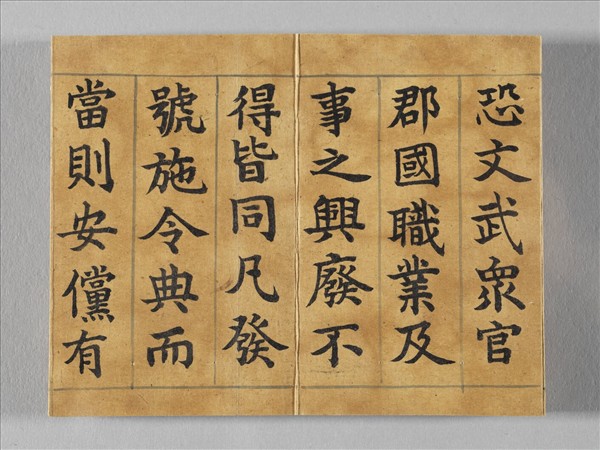 恐文武眾官
郡國職業及
事之興廢不
得皆同凡發
號施令典而
當則安儻有